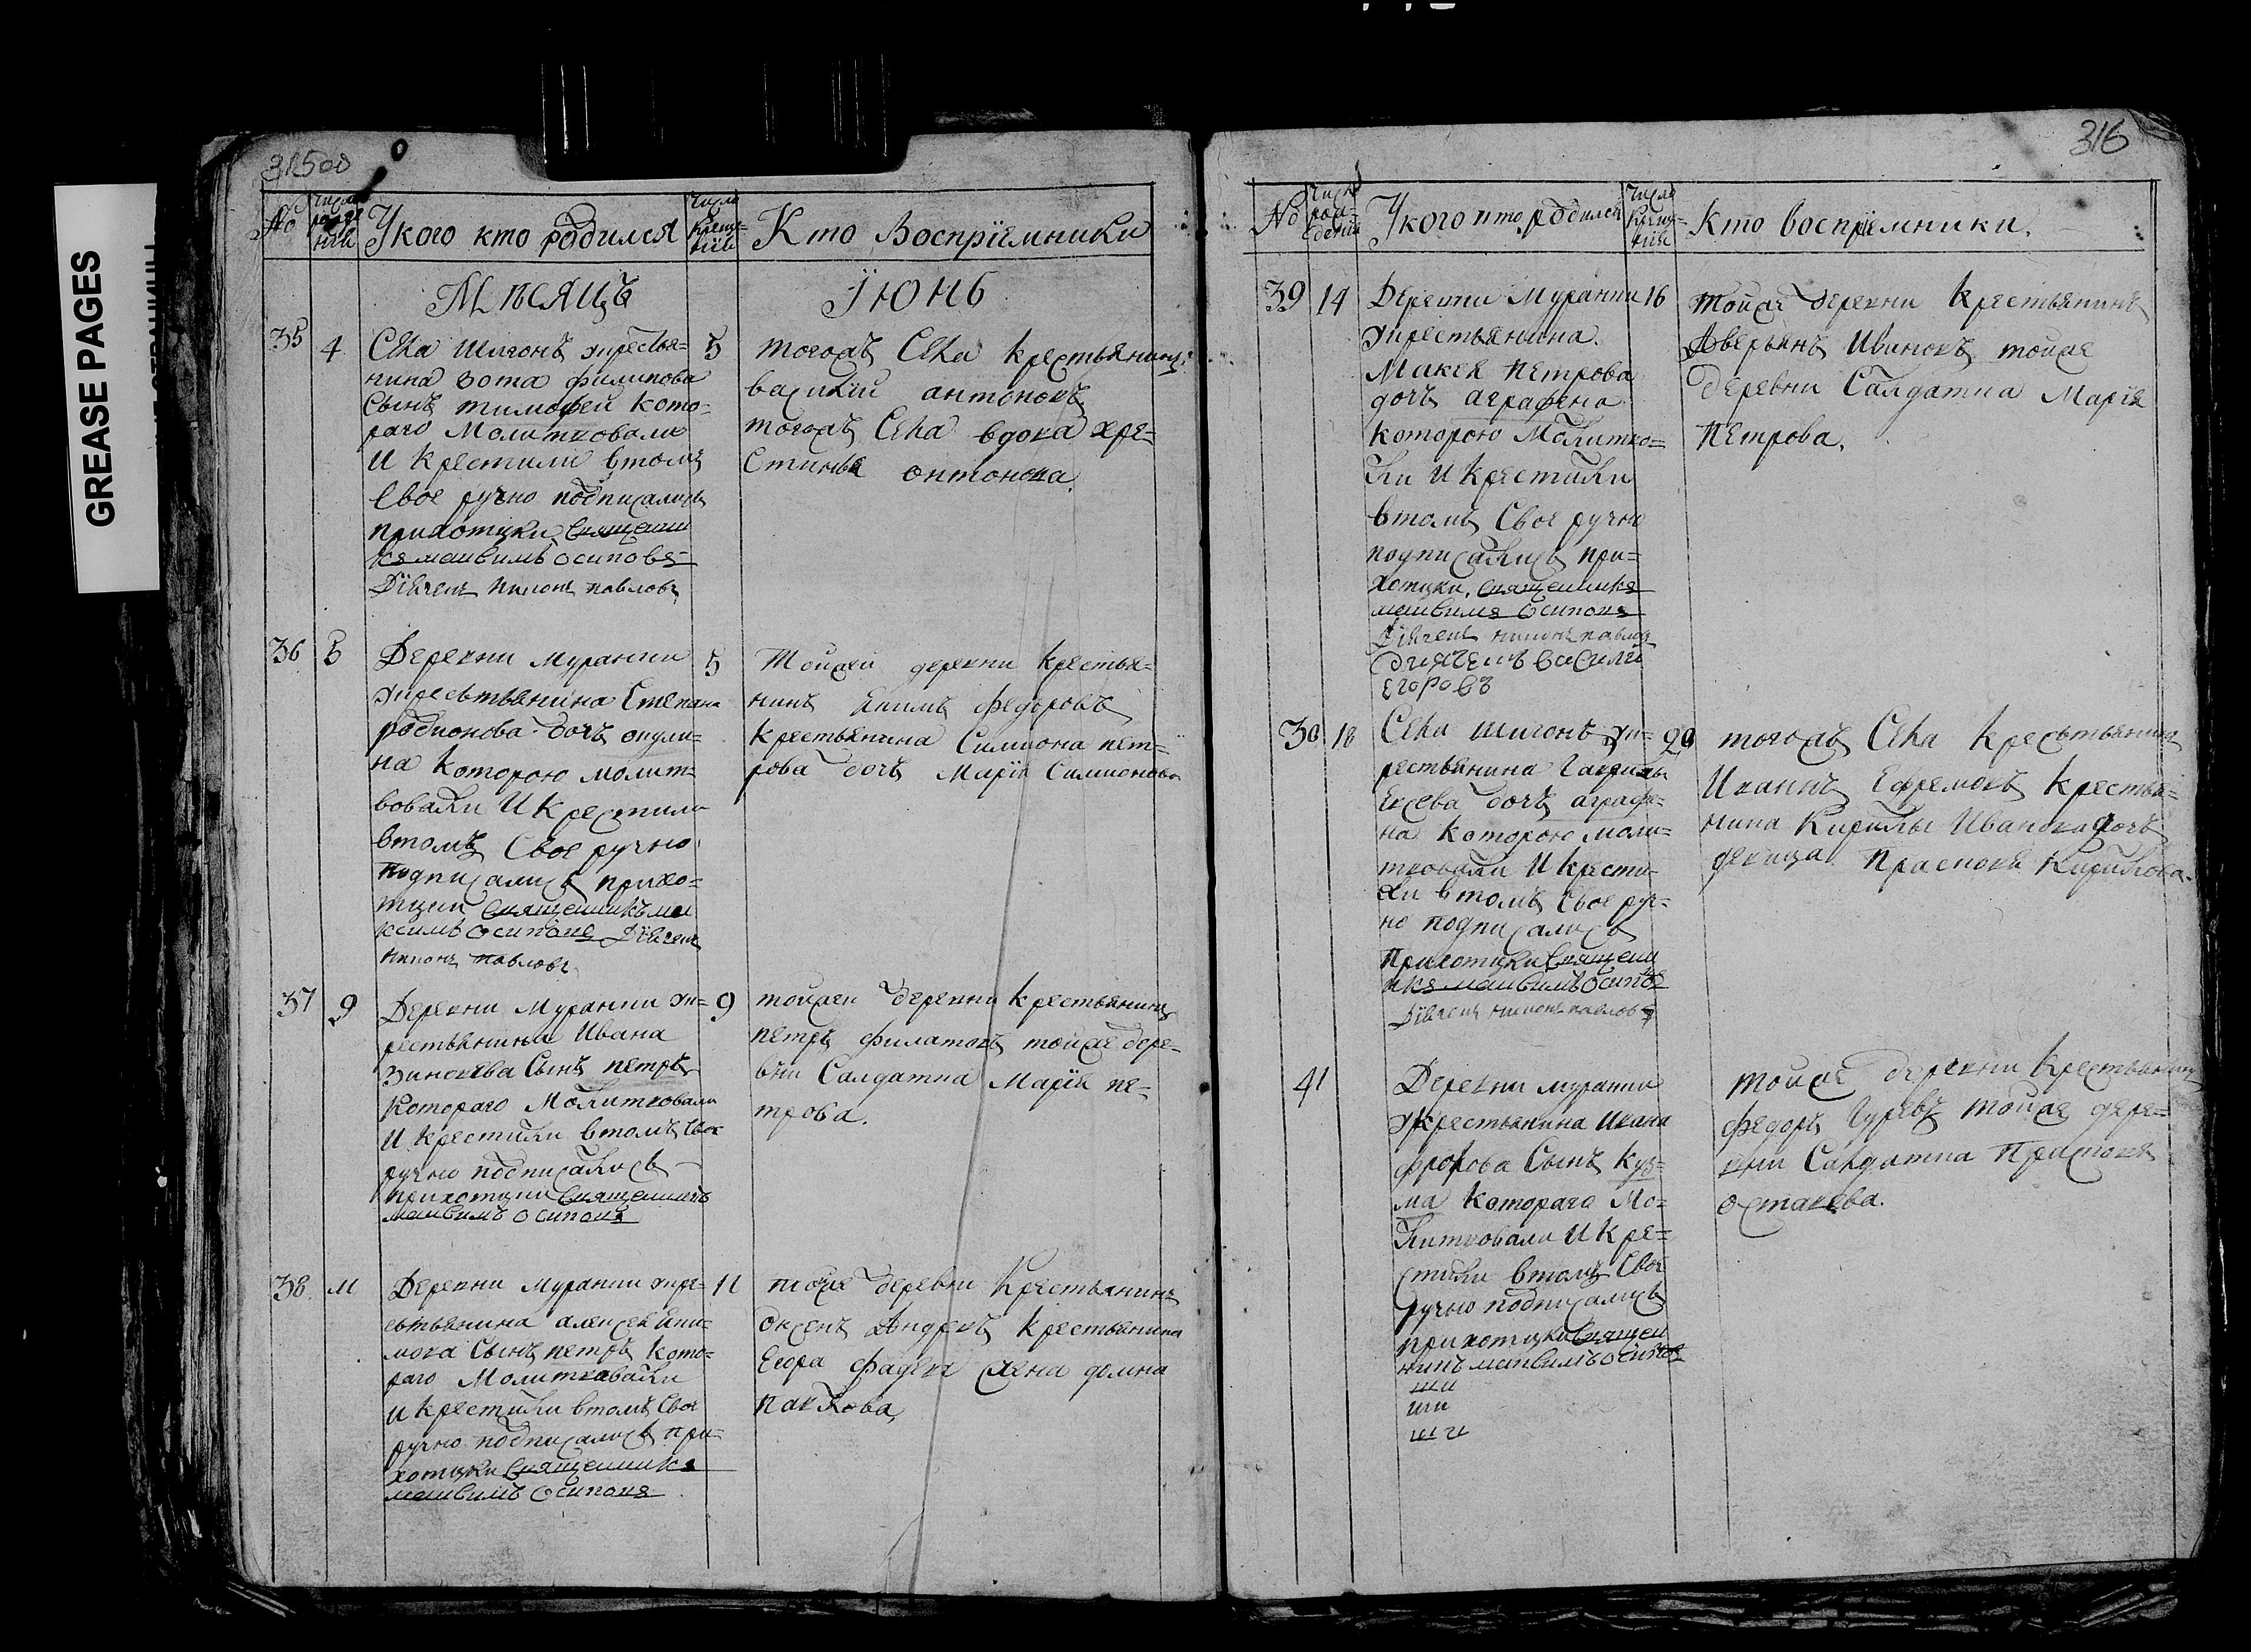 GREASE PAGES
31500
No
число рожде нiи
Укого кто родился
число креще- нiи
Кто Воспрiемники
Мѣсяцъ Iюнь
35 4
Села Шигонъ укрестья-
нина Зота филипова
Сынъ тимофей кото-
раго Молитвовали
И крестили втомъ
Свое ручно подписались
прихотцки Священни
къ максимъ осиповъ
Дiячекъ никонъ павловъ
5
тогожъ Села крестьянинъ
василiй антоновъ
тогожъ Села вдова хре-
стинья онтонова
36 5
Деревни муранки
укресьтьянина Степана
родионова дочь окули-
на которою молит-
вовали И крестили
втомъ Свое ручно
подписались прихо-
тцки Священникъ ма
ксимъ осиповъ Дiячекъ
никонъ павловъ
5
Тойжей деревни крестья-
нинъ Екимъ федоровъ
крестьянина Симиона пет-
рова дочь Марiя Симионова
37 9
Деревни Муранки ук-
рестьянина Ивана
Зиновева Сынъ петръ
котораго Молитвовали
И крестили втомъ Свое
ручно подписались
прихотцки Священникъ
максимъ осиповъ
9
тойжеи деревни крестьянинъ
петръ филатовъ тойже дере-
вни Салдатка Марiя пе-
трова.
38. 11
Деревни Муранки укре-
стьянина алексея Еки-
мова Сынъ петръ кото-
раго Молитвовали
и крестили втомъ Свое
ручно подписались при-
хотцки Священникъ
максимъ осиповъ
11
тойже деревни крестьянинъ
Оксенъ Андревъ крестьянина
Егора фадева жена домна
павлова
316
No
число рож- дения
Укого кто родился
число креще- нiи
Кто воспрiемники.
39 14
Деревни Муранки
укрестьянина
Макея Петрова
дочь аграфена
которою Молитво-
ли И крестили
втомъ Свое ручно
подписались при-
хотцки. священникъ
максимъ осиповъ
Дiячекъ никонъ павловъ
дiячекъ василеi
Егоровъ
16
тойже деревни крестьянинъ
Аверьянъ Ивановъ тойже
деревни Салдатка Марiя
Петрова.
30 18
Села шигонъ ук-
рестьянина Гаврилы
Евсева дочь аграфе-
на которою моли-
твовали И крести-
ли втомъ Свое руч-
но подписались
прихотцки Священи
икъ максимъ осиповъ
Дiячекъ никонъ павловъ
20
тогожъ Села крестьянинъ
Иванъ Ефремовъ крестья-
нина Кирилы Иванова дочь
девица Прасковя Кирилова.
41
Деревни муранки
укрестьянина Ивана
фролова Сынъ куз-
ма котораго Мо-
литвовали И кре-
стили втомъ Свое
ручно подписались
прихотцки Священ
никъ максимъ осиповъ
тойже деревни крестьянинъ
федоръ Гуревъ тойже дере-
вни Салдатка Прасковя
остафева.